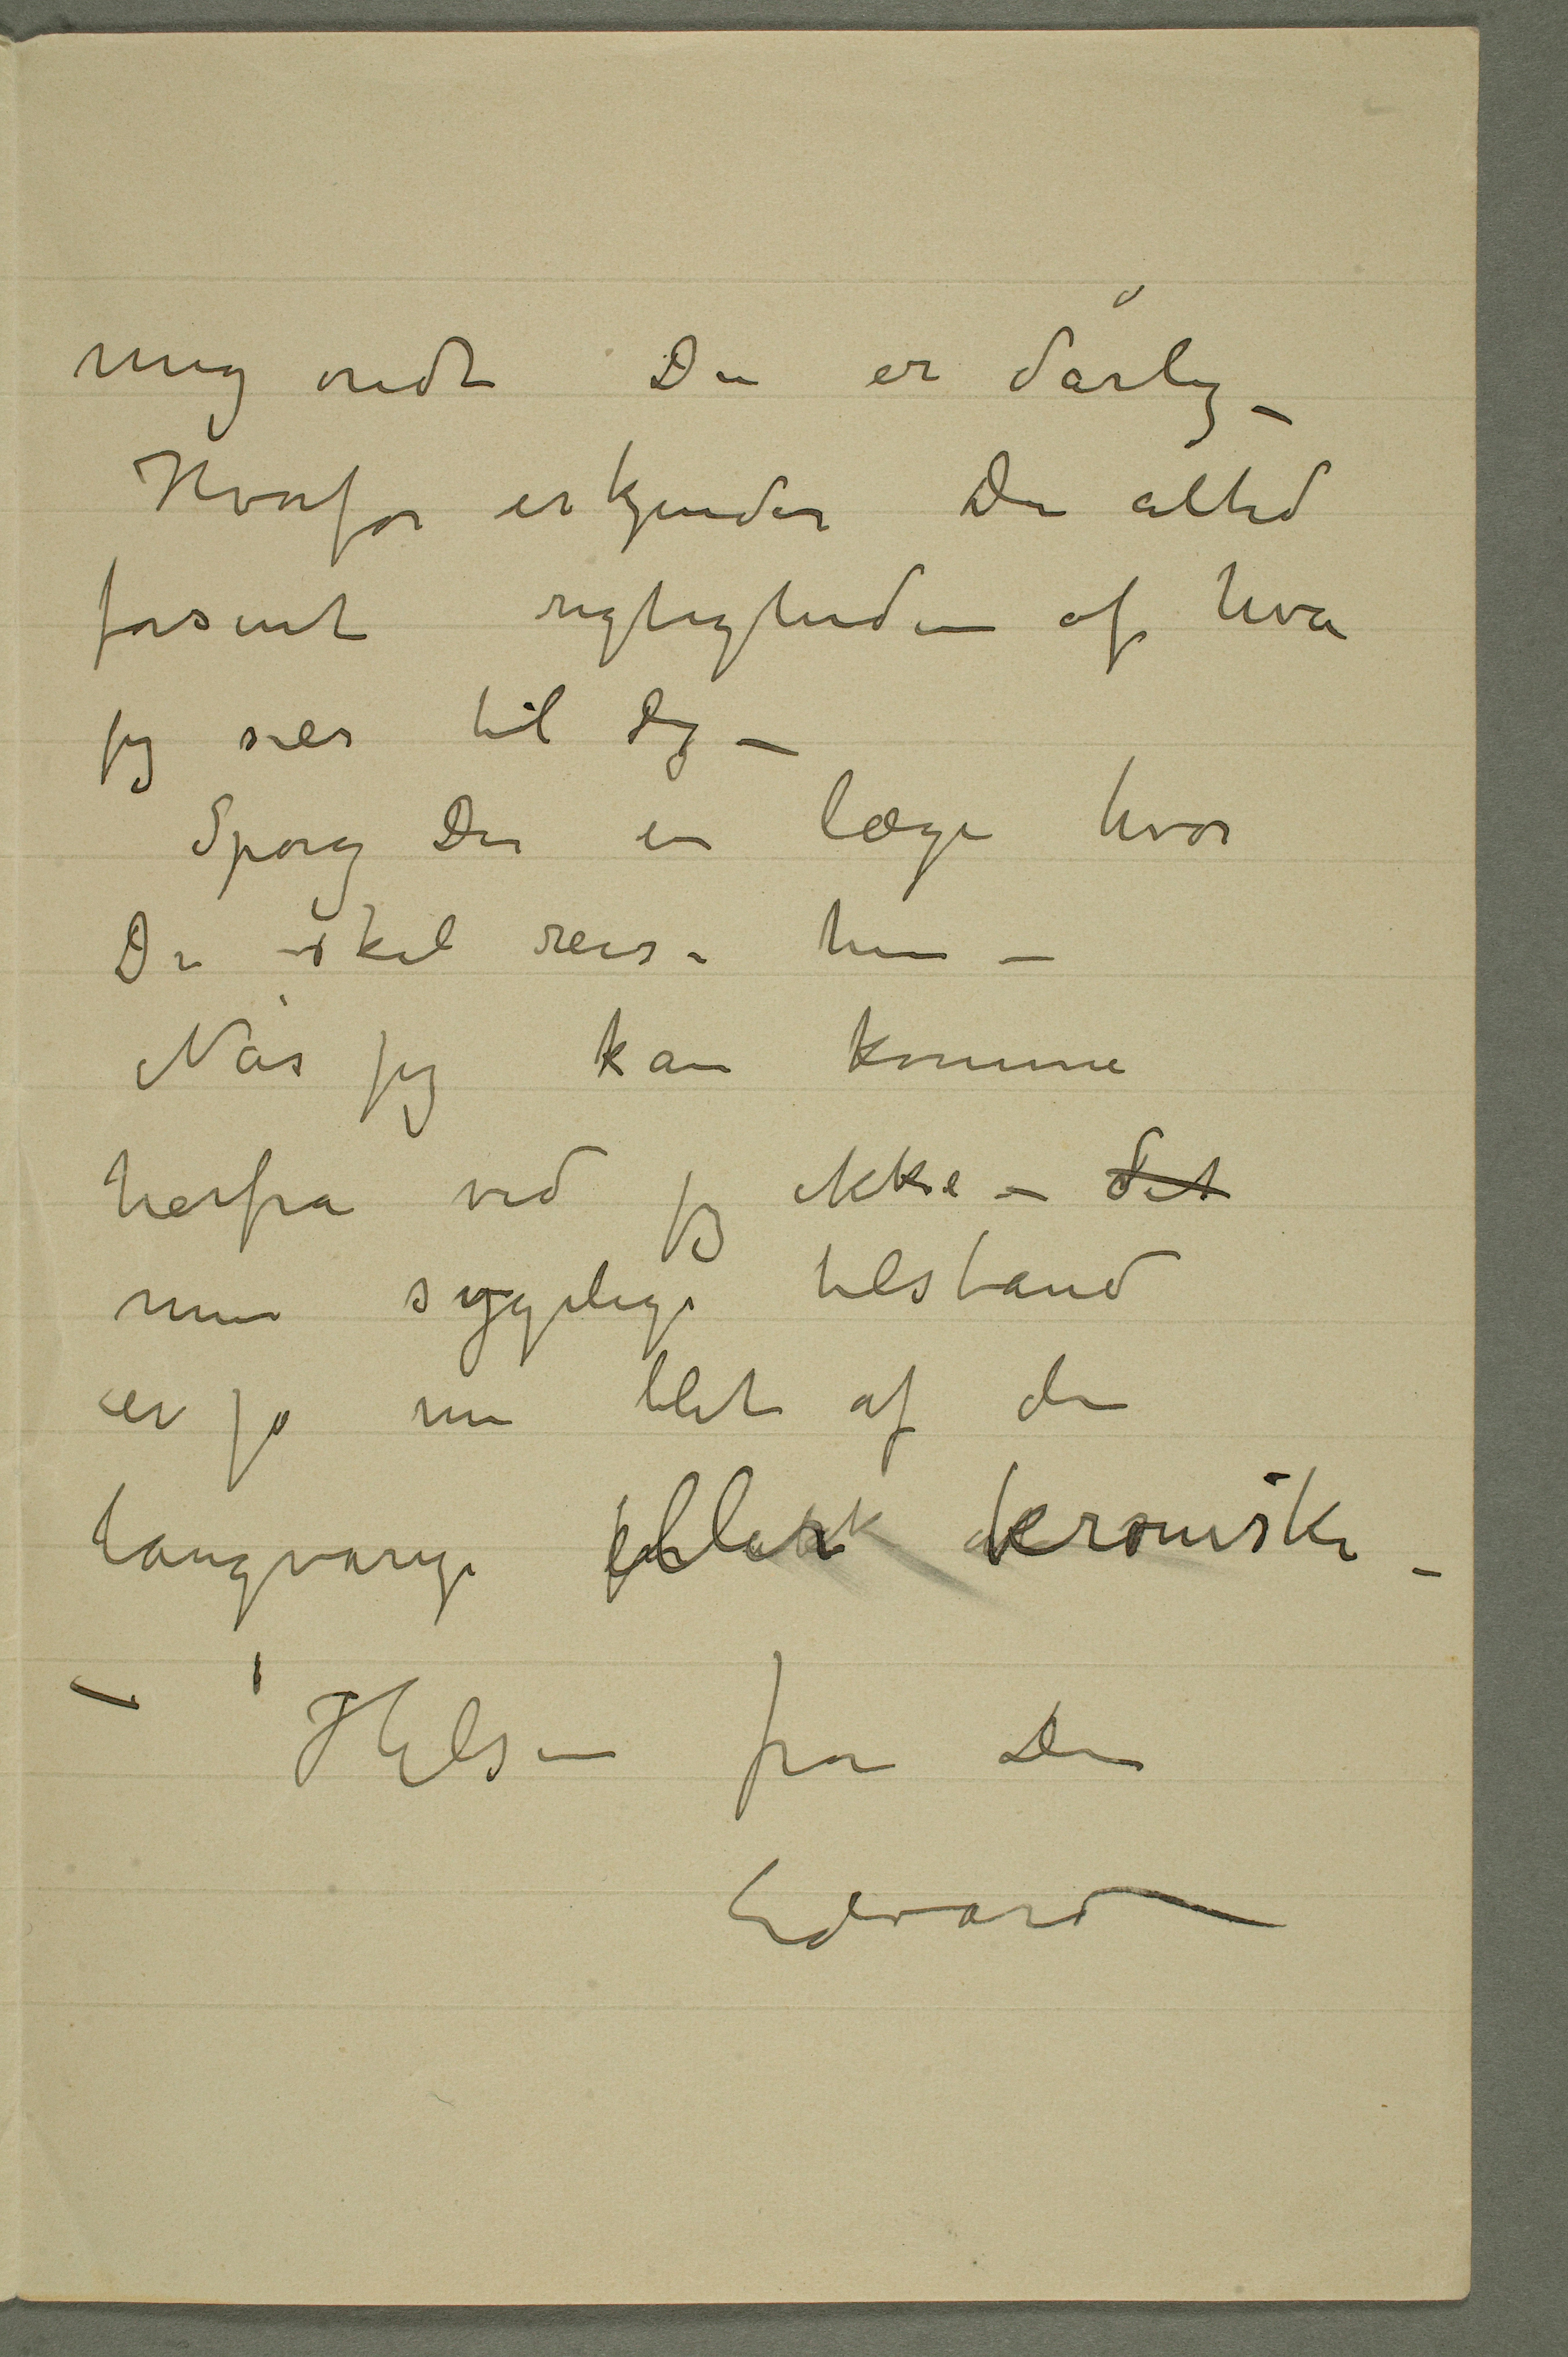 mig ondt Du er dårlig –
Hvorfor erkjender Du altid
forsent rigtigheden af hva
jeg sier til dig –
Spørg Du en læge hvor
Du skal reise hen –
Når jeg kan komme
herfra ved jeg ikke – det
min sygelige tilstand
er jo nu blet af den
langvarige eller kroniske –
– Hilsen fra Din
Edvard